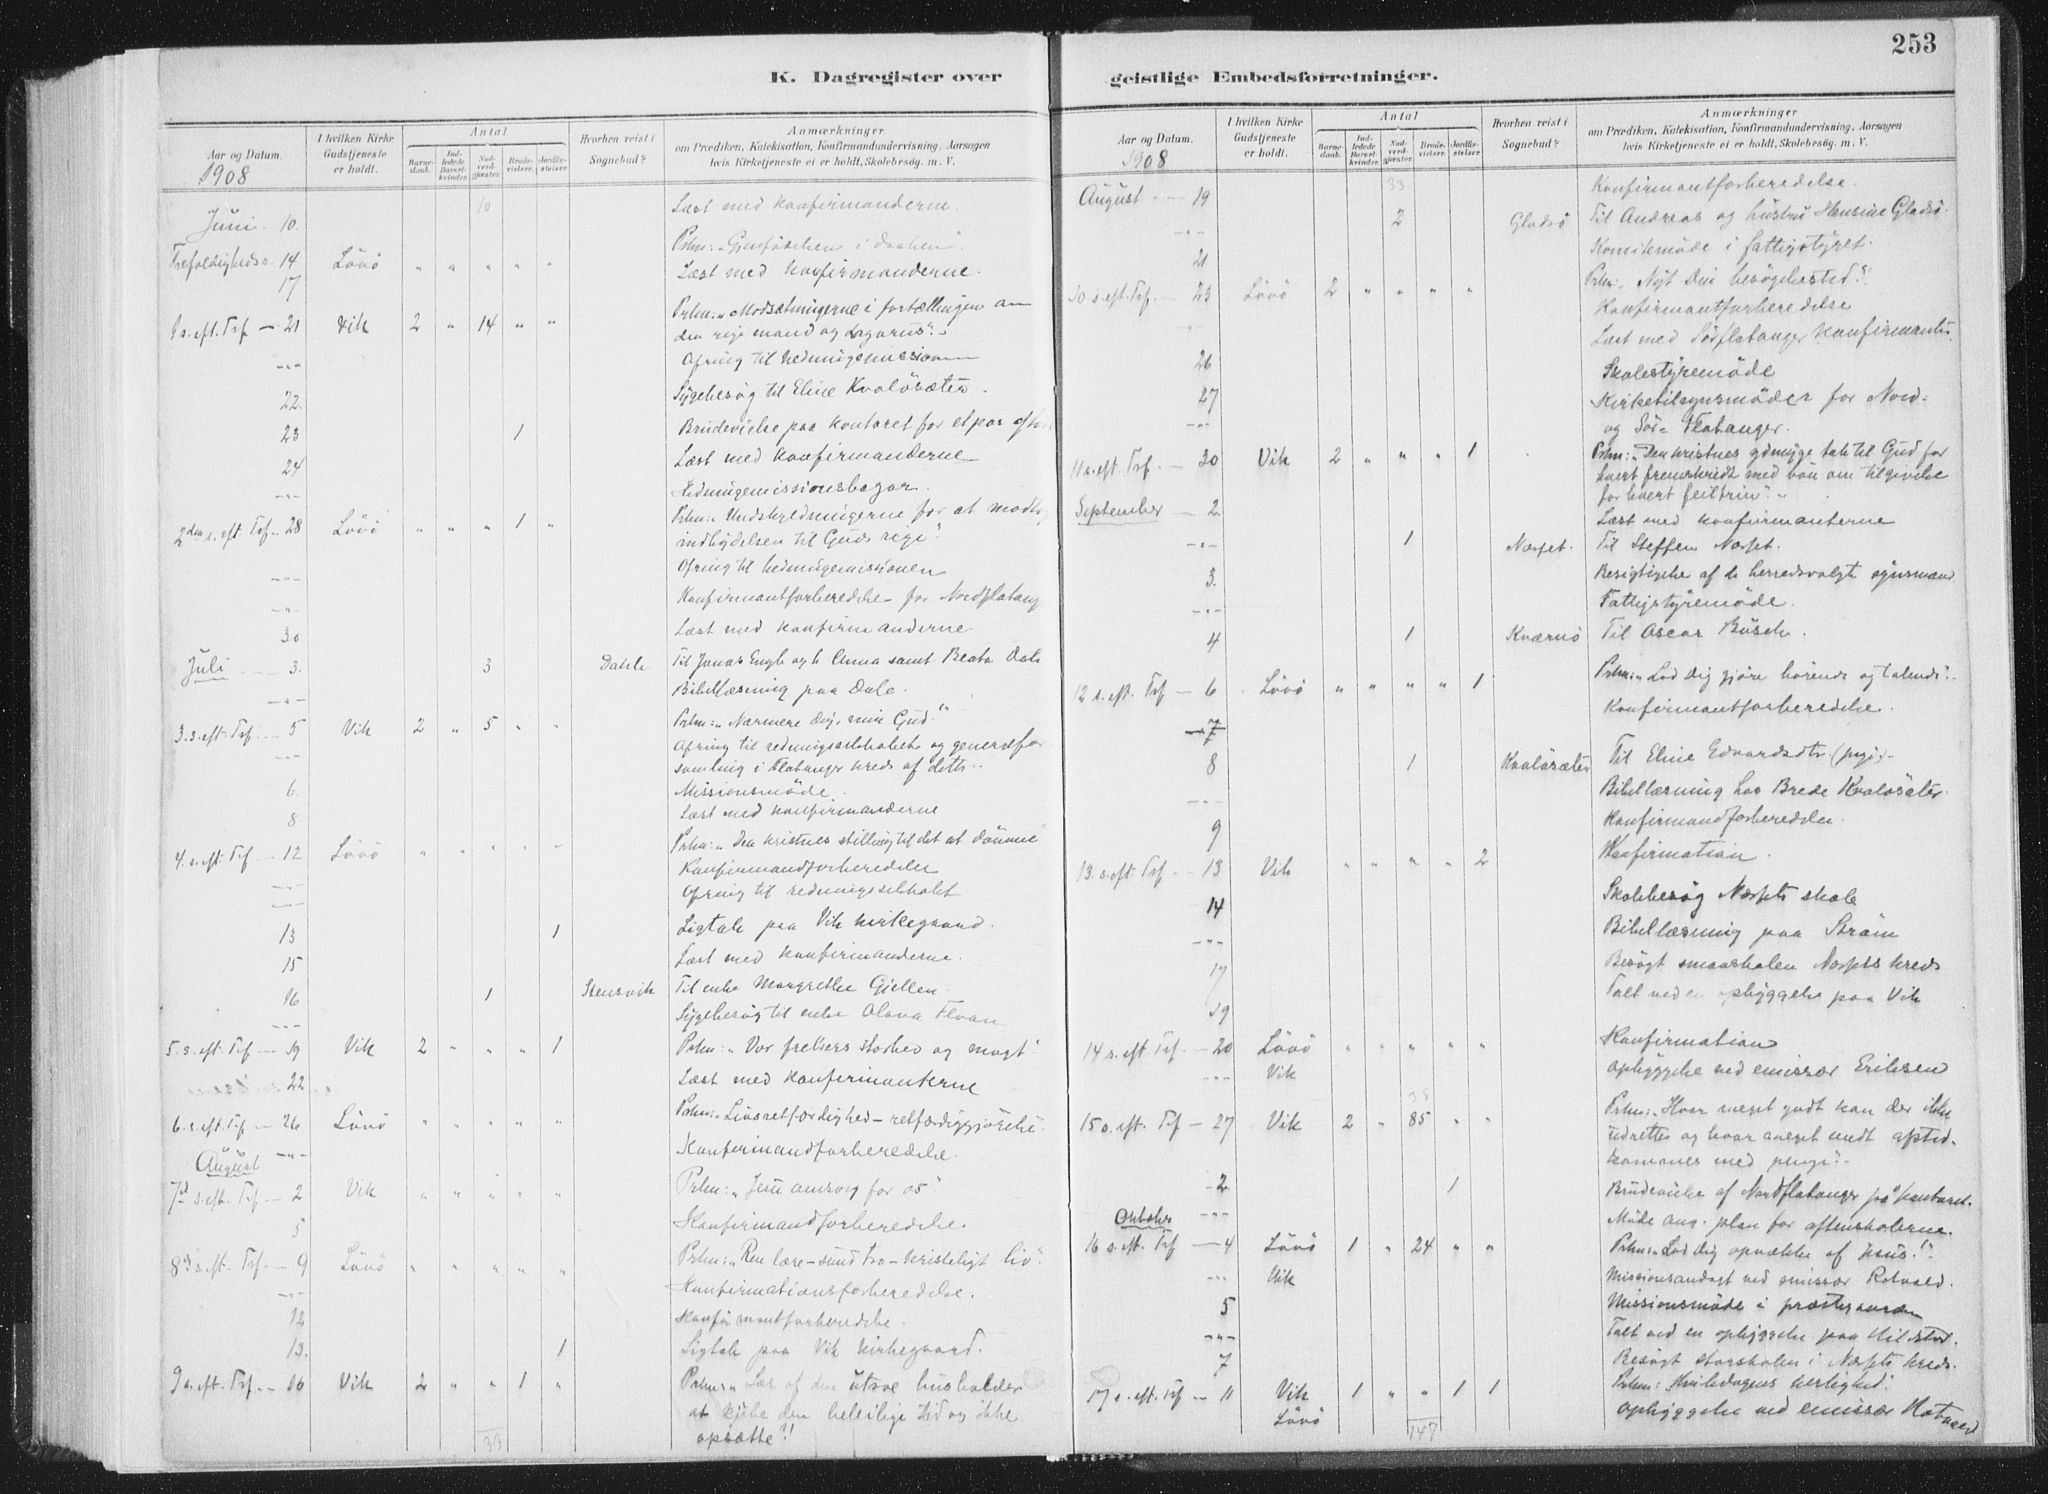 253
K. Dagregister over geistlige Embedsforretninger.
Aar og Datum. 1908
I hvilken Kirke Gudstjeneste er holdt.
Antal
Barnedaab.
Indledede Barselkvinder.
Nadverdgjæster
Brudevielser.
Jordfæstelser.
Hvorhen reist i Sognebud?
Anmærkninger
om Prædiken, Katekisation, Konfirmandundervisning, Aarsagen
hvis Kirketjeneste ei er holdt, Skolebesög. m. V.
10
Juni 10. Læst med konfirmanderne.
Trefoldigheds s. 14 Lövö " " " " " Prkn: " i daaben".
17 Læst med konfirmanderne.
1 s. eft. Tref. — 21 Vik 2 " 14 " " Prkn: "Modsætningerne i fortællingen om
den rige mand og Lazarus".
-"- Ofring til hedningemissionen
22. Sygebesög til Eline Kvalösæter.
23 1 Brudevielse paa kontoret for et par
24 Læst med konfirmanderne
-"- Hedningemissionsbazar.
2den s. eft. Tref. — 28 Lövö " " " 1 " Prkn: "Undskyldningerne for at modta
indbydelsen til Guds rige".
-"- Ofring til hedningemissionen
-"- Konfirmantforberedelse for Nordflatang
30 Læst med konfirmanderne
Juli — 3. 3 Dahle Til Jonas Engb og h. Anna samt Beata Dale
-"- Bibellæsning paa Dale.
3. s. eft. Tref. — 5 Vik 2 " 5 " " Prkn: "Nærmere dig, min Gud!"
-"- Ofring til redningsselskabet og generalfor
samling i Flatanger kreds af dette.
6. Missionsmöde.
8 Læst med konfirmanderne
4. s. eft. Tref. — 12 Lövö " " " " " Prkn: "Den kristnes stilling til det at dömme"
-"- Konfirmandforberedelse
-"- Ofring til redningsselskabet
13 1 Ligtale paa Vik kirkegaard.
15 Læst med konfirmanderne.
16 1 Stensvik Til enke Margrethe Gjellen.
-"- Sygebesög til enke Olava
5. s. eft. Tref. — 19 Vik 2 " " " 1 Prkn: "Vor frelsers storhed og magt".
22 Læst med konfirmanterne
6. s. eft. Tref. — 26 Lövö " " " " " Prkn: "Livsretfærdighed – retfærdiggjörelse".
-"- Konfirmandforberedelse.
August
7de s. eft. Tref. — 2 Vik " " " " " Prkn: "Jesu omsorg for os"
5 Konfirmandforberedelse.
8de s. eft. Tref. — 9 Lövö " " " " " Prkn: "Ren lære – sund tro – kristeligt liv".
-"- Konfirmationsforberedelse.
12 Konfirmantforberedelse.
13. 1 Ligtale paa Vik kirkegaard.
9 s. eft. Tref. — 16 Vik 2 " " 1 " Prkn: "Lær af den utroe husholder
at kjöbe den beleilige tid og ikke
opsætte"!
33
Aar og Datum. 1908
I hvilken Kirke Gudstjeneste er holdt.
Antal
Barnedaab.
Indledede Barselkvinder.
Nadverdgjæster
Brudevielser.
Jordfæstelser.
Hvorhen reist i Sognebud?
Anmærkninger
om Prædiken, Katekisation, Konfirmandundervisning, Aarsagen
hvis Kirketjeneste ei er holdt, Skolebesög. m. V.
33
August — 19 Konfirmantforberedelse.
-"- 2 Gladsö Til Andreas og hustru Hansine Gladsö.
21 Komitemöde i fattigstyret.
10 s. eft. Tref. — 23 Lövö 2 " " " " Prkn: "Nyt Din besögelsestid".
-"- Konfirmantforberedelse
Læst med Sörflatanger konfirmanter
26 Skolestyremöde
27 Kirketilsynsmöder for Nord-
-"- og Sör- Flatanger.
11 s. eft. Tref. — 30 Vik 2 " " " 1 Prkn: "Den kristnes ydmyge tak til Gud for
hvert fremskridt med bön om tilgivelse
for hvert feiltrin".
September — 2 Læst med konfirmanterne
-"- 1 Næsset. Til Steffen Næsset.
3. Besigtigelse af de herredsvalgte synsmænd.
-"- Fattigstyremöde.
4 1 Kværnö Til Oscar Busch.
12 s. eft. Tref. — 6 Lövö " " " " 1 Prkn: "Lad Dig gjöre hörende og talende".
7 Konfirmantforberedelse.
8 1 Kvalösæter Til Eline Edvardsdtr (pige).
-"- Bibellæsning hos Brede Kvalösæter.
9 Konfirmandforberedelse.
13. s. eft. Tref. — 13 Vik " " " " 2 Konfirmation.
14 Skolebesög Næssets skole
-"- Bibellæsning paa Ström
17 Besögt smaaskolen Næssets kreds
19 Talt ved en opbyggelse paa Vik
14 s. eft. Tref. — 20 Lövö " " " " " Konfirmation
-"- Vik opbyggelse ved emissær Eriksen
38
15 s. eft. Tref. — 27 Vik 2 " 85 " " Prkn: "Hvor meget godt kan der ikke
udrettes og hvor meget ondt afsted-
kommes med penge".
2 1 Brudevielse af Nordflatanger på kontoret.
Oktober -"- Möde ang. plan for aftenskolerne.
16 s. eft. Tref. — 4 Lövö 1 " 24 " " Prkn: "Lad dig opvække af Jesus!"
-"- Vik Missionsandagt ved emissær Rotvold.
5 Missionsmöde i præstegaarden
-"- Talt ved en opbyggelse paa
7 Besögt storskolen i Næssets kreds.
17 s. eft. Tref. — 11 Vik 1 " " 1 1 Prkn: "Hviledagens herlighed".
Lövö opbyggelse ved emissær
147